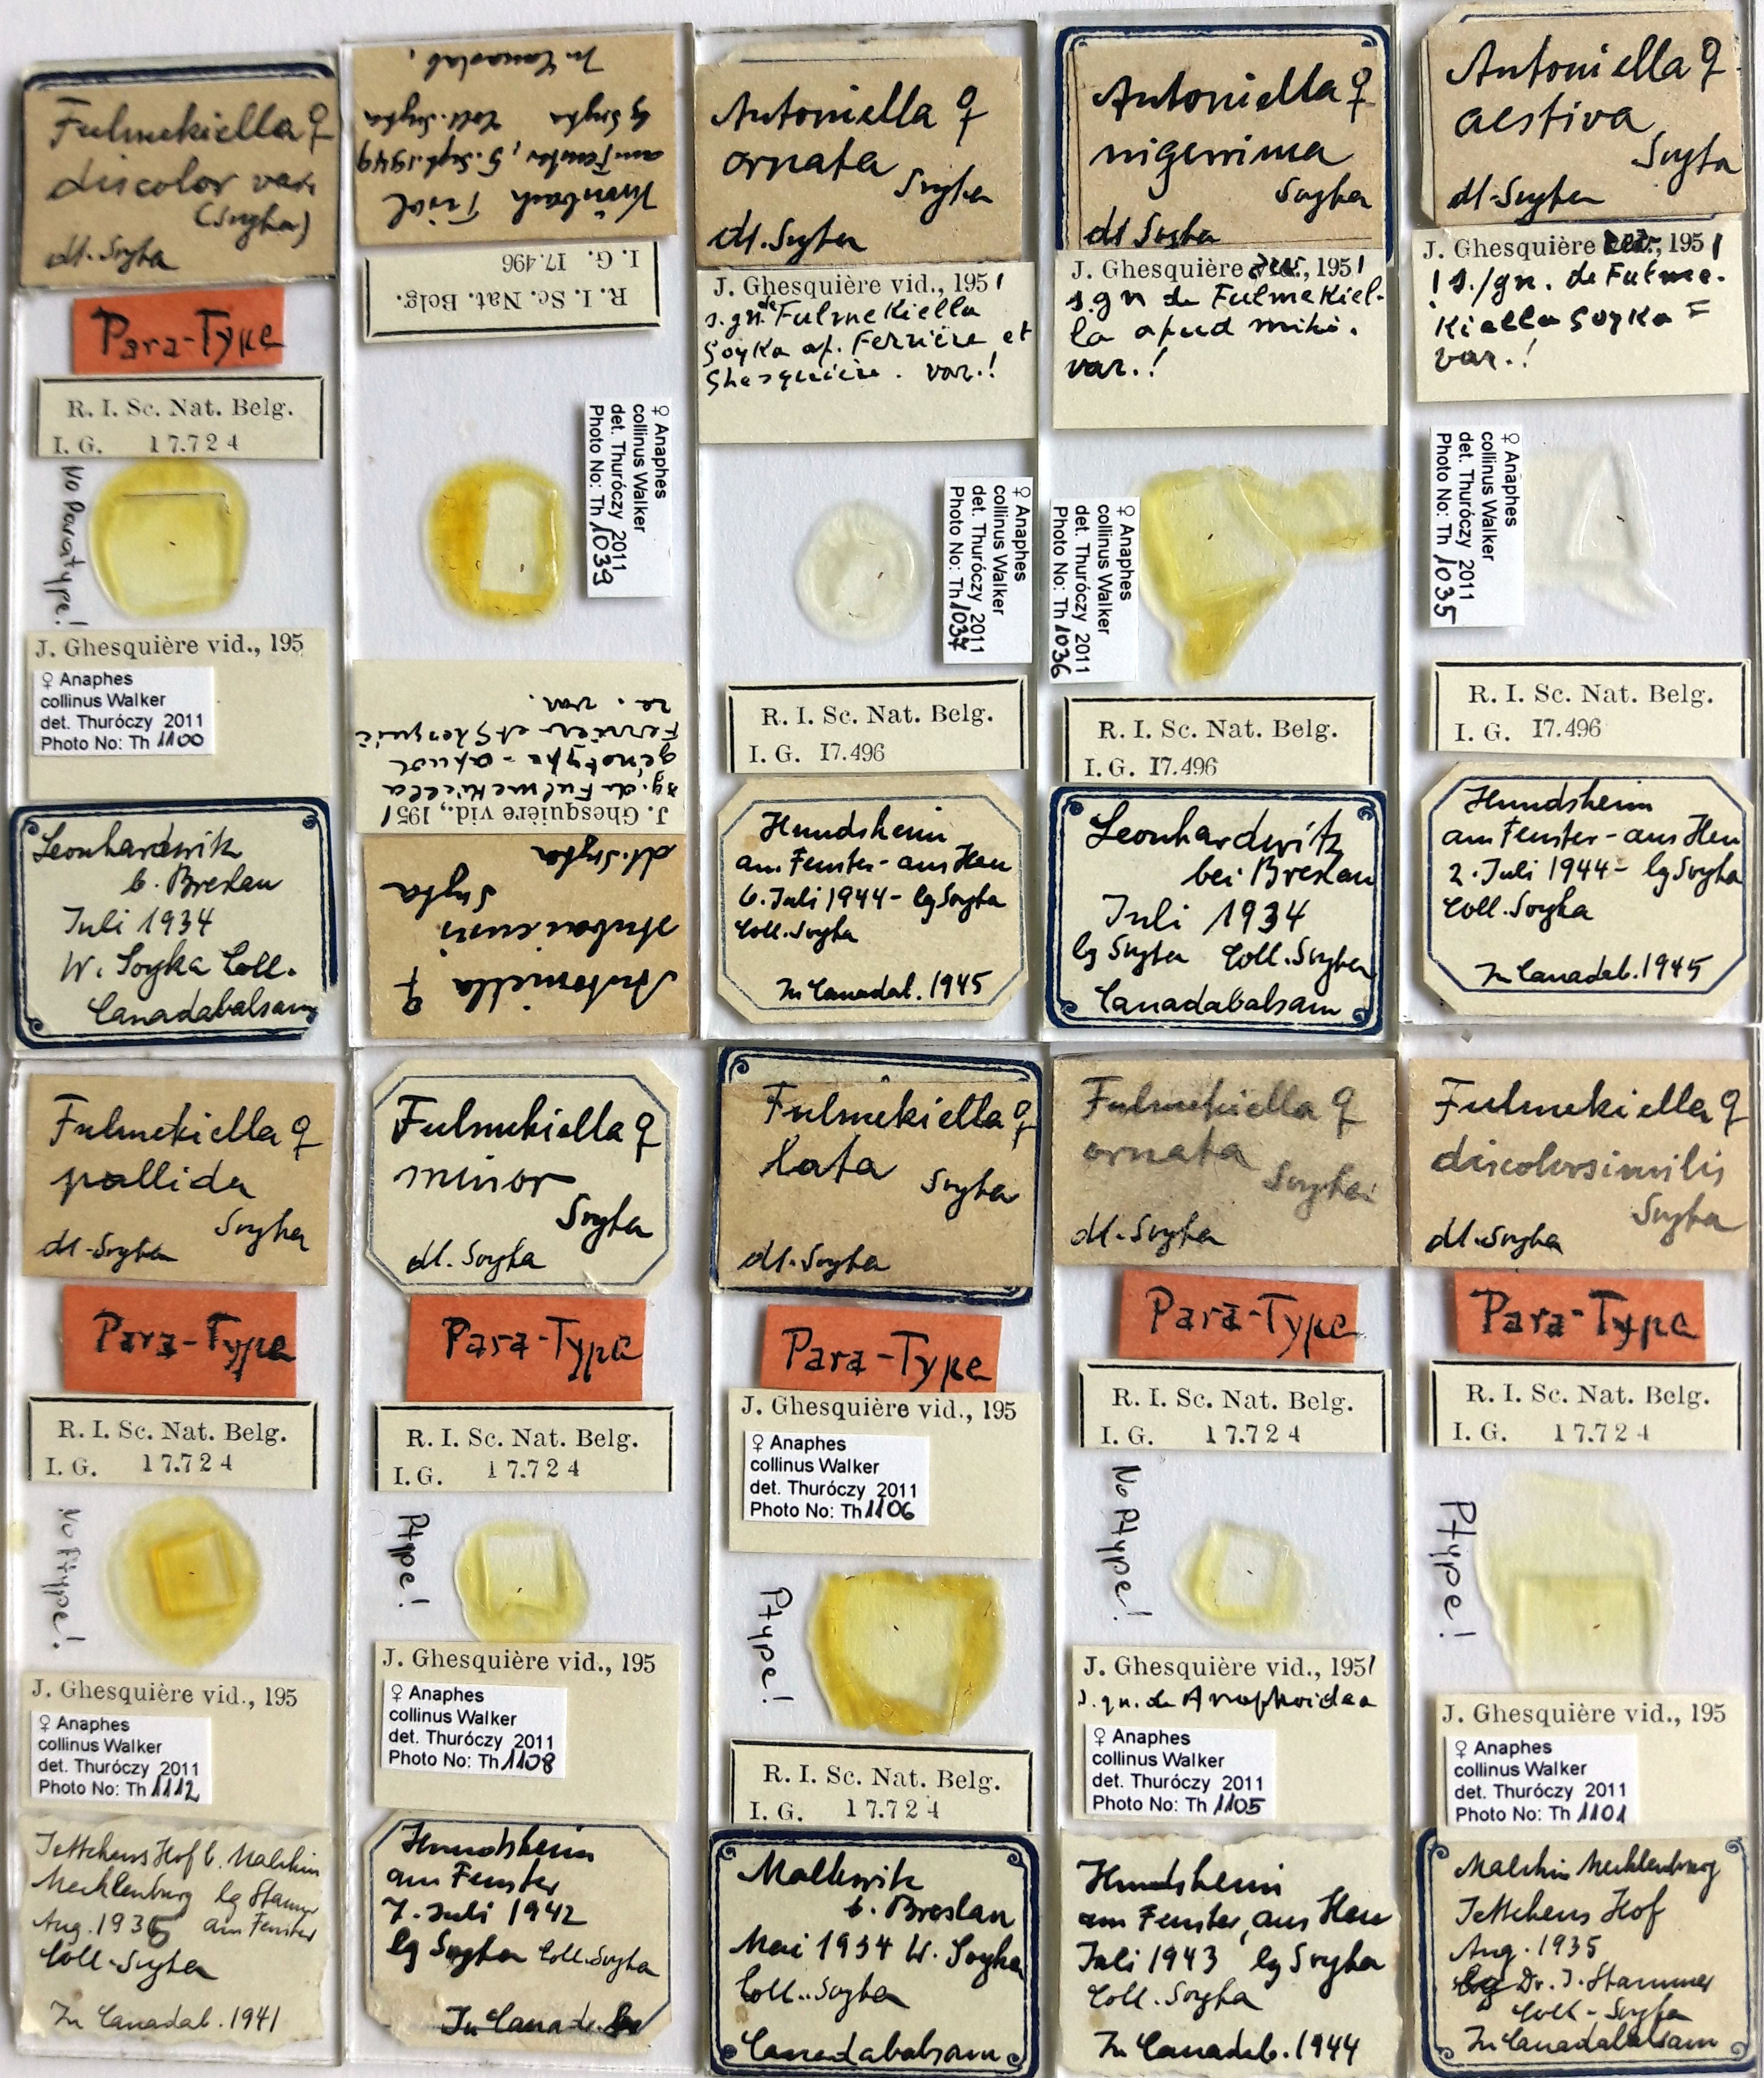 Fulmekiella ♀
discolor var.
(Soyka)
det. Soyka
Para-Type
R. I. Sc. Nat. Belg.
I. G. 17.724
No Paratype!
J. Ghesquière vid., 195
♀ Anaphes
collinus Walker
det. Thuróczy 2011
Photo No: Th 1100
Leonhardwitz
b. Breslau
Juli 1934
W. Soyka Coll.
Canadabalsam
Antoniella ♀
stubaicus
Soyka
det. Soyka
J. Ghesquière vid., 1951
sg. de Fulmekiella
génotype - apud
Ferrière et Ghesquiè
re. var.
♀ Anaphes
collinus Walker
det. Thuróczy 2011
Photo No: Th 1039
R. I. Sc. Nat. Belg.
I. G. I7.496
Tirol
am Fenster, 5. Sept. 1949
lg Soyka Coll. Soyka
In Canadab.
Antoniella ♀
ornata
Soyka
det. Soyka
J. Ghesquière vid., 1951
s.gn. de Fulmekiella
Soyka ap. Ferrière et
Ghesquière. var.!
♀ Anaphes
collinus Walker
det. Thuróczy 2011
Photo No: Th 1037
R. I. Sc. Nat. Belg.
I. G. I7.496
Hundsheim
am Fenster - aus Heu
6. Juli 1944 - lg Soyka
Coll. Soyka
In Canadab. 1945
Antoniella ♀
nigerrima
Soyka
det Soyka
J. Ghesquière 1951
s.gn de Fulmekiel-
la apud mihi.
var.!
♀ Anaphes
collinus Walker
det. Thuróczy 2011
Photo No: Th 1036
R. I. Sc. Nat. Belg.
I. G. I7.496
Leonhardwitz
bei Breslau
Juli 1934
lg Soyka Coll. Soyka
Canadabalsam
Antoniella ♀
aestiva
Soyka
det. Soyka
J. Ghesquière 1951
! s./gn. de Fulme-
kiella Soyka =
var.!
♀ Anaphes
collinus Walker
det. Thuróczy 2011
Photo No: Th 1035
R. I. Sc. Nat. Belg.
I. G. I7.496
Hundsheim
am Fenster - aus Heu
2. Juli 1944 - lg Soyka
Coll. Soyka
In Canadab. 1945
Fulmekiella ♀
pallida
Soyka
det. Soyka
Para-Type
R. I. Sc. Nat. Belg.
I. G. 17.724
No Ptype!
J. Ghesquière vid., 195
♀ Anaphes
collinus Walker
det. Thuróczy 2011
Photo No: Th 1112
Jettchens Hof b. Malchin
Mecklenburg lg Stammer
Aug. 1935 am Fenster
Coll. Soyka
In Canadab. 1941
Fulmekiella ♀
minor
Soyka
det. Soyka
Para-Type
R. I. Sc. Nat. Belg.
I. G. 17.724
Ptype!
J. Ghesquière vid., 195
♀ Anaphes
collinus Walker
det. Thuróczy 2011
Photo No: Th 1108
Hundsheim
am Fenster
7. Juli 1942
lg Soyka Coll. Soyka
In
Fulmekiella ♀
lata
Soyka
det. Soyka
Para-Type
J. Ghesquière vid., 195
♀ Anaphes
collinus Walker
det. Thuróczy 2011
Photo No: Th 1106
Ptype!
R. I. Sc. Nat. Belg.
I. G. 17.724
Malkwitz
b. Breslau
Mai 1934 W. Soyka
Coll. Soyka
Canadabalsam
Fulmekiella ♀
ornata
Soyka
det. Soyka
Para-Type
R. I. Sc. Nat. Belg.
I. G. 17.724
No Ptype!
J. Ghesquière vid., 1951
s.gn. de Anaphoidea
♀ Anaphes
collinus Walker
det. Thuróczy 2011
Photo No: Th 1105
Hundsheim
am Fenster, aus Heu
Juli 1943 lg Soyka
Coll. Soyka
In Canadab. 1944
Fulmekiella ♀
discolorsimilis
Soyka
det. Soyka
Para-Type
R. I. Sc. Nat. Belg.
I. G. 17.724
Ptype!
J. Ghesquière vid., 195
♀ Anaphes
collinus Walker
det. Thuróczy 2011
Photo No: Th 1101
Malchin Mecklenburg
Jettchens Hof
Aug. 1935
lg Dr. J. Stammer
Coll - Soyka
In Canadabalsam